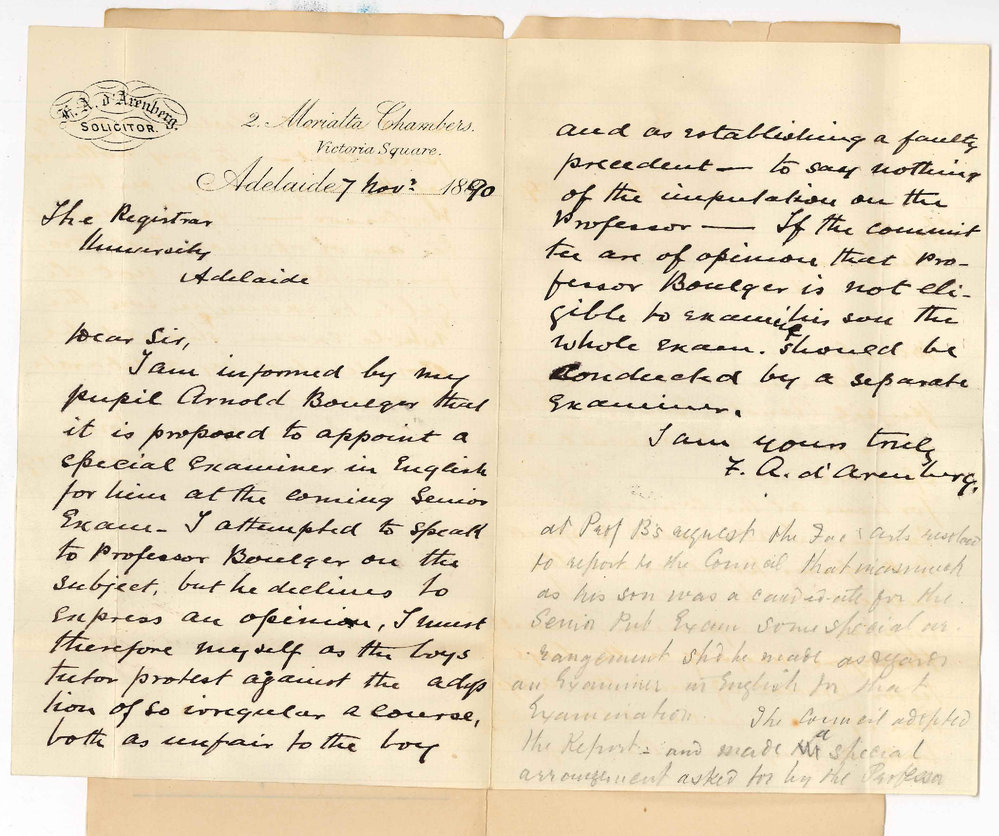 F. A. d'Arenberg.
SOLICITOR.
2. Morialta Chambers.
Victoria Square.
Adelaide 7 Nov: 1890
The Registrar
University
Adelaide
Dear Sir,
I am informed by my
pupil Arnold Boulger that
it is proposed to appoint a
special Examiner in English
for him at the coming Senior
Exam - I attempted to speak
to Professor Boulger on the
subject, but he declines to
express an opinion, I must
therefore myself as the boys
tutor protest against the adop
tion of so irregular a course,
both as unfair to the boy
and as establishing a faulty
precedent — to say nothing
of the imputation on the
Professor — If the commit
tee are of opinion that Pro-
fessor Boulger is not eli-
gible to examine his son the
whole exam. should be
conducted by a separate
Examiner.
I am yours truly
F. A. d'Arenberg.
at Prof B's request the Fac: Arts resolved
to report to the Council that inasmuch
as his son was a candidate for the
Senior Pub Exam some special ar-
rangement shd be made as regards
an Examiner in English for that
Examination. The Council adopted
the Report - and made a special
arrangement asked for by the Professor